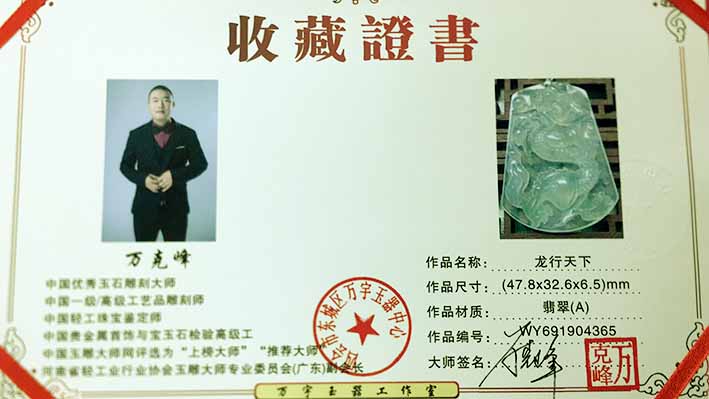 收藏證書
万克峰
中国优秀玉石雕刻大师
中国一级/高级工艺品雕刻师
中国轻工珠宝鉴定师
中国贵金属首饰与宝玉石检验高级工
中国玉雕大师网评选为“上榜大师”“推荐大师”
河南省轻工业行业协会玉雕大师专业委员会(广东)副会长
四会市东城区万宇玉器中心
作品名称: 龙行天下
作品尺寸: (47.8x32.6x6.5)mm
作品材质: 翡翠(A)
作品编号: WY691904365
大师签名: 万克峰
万克峰
万宇玉器工作室